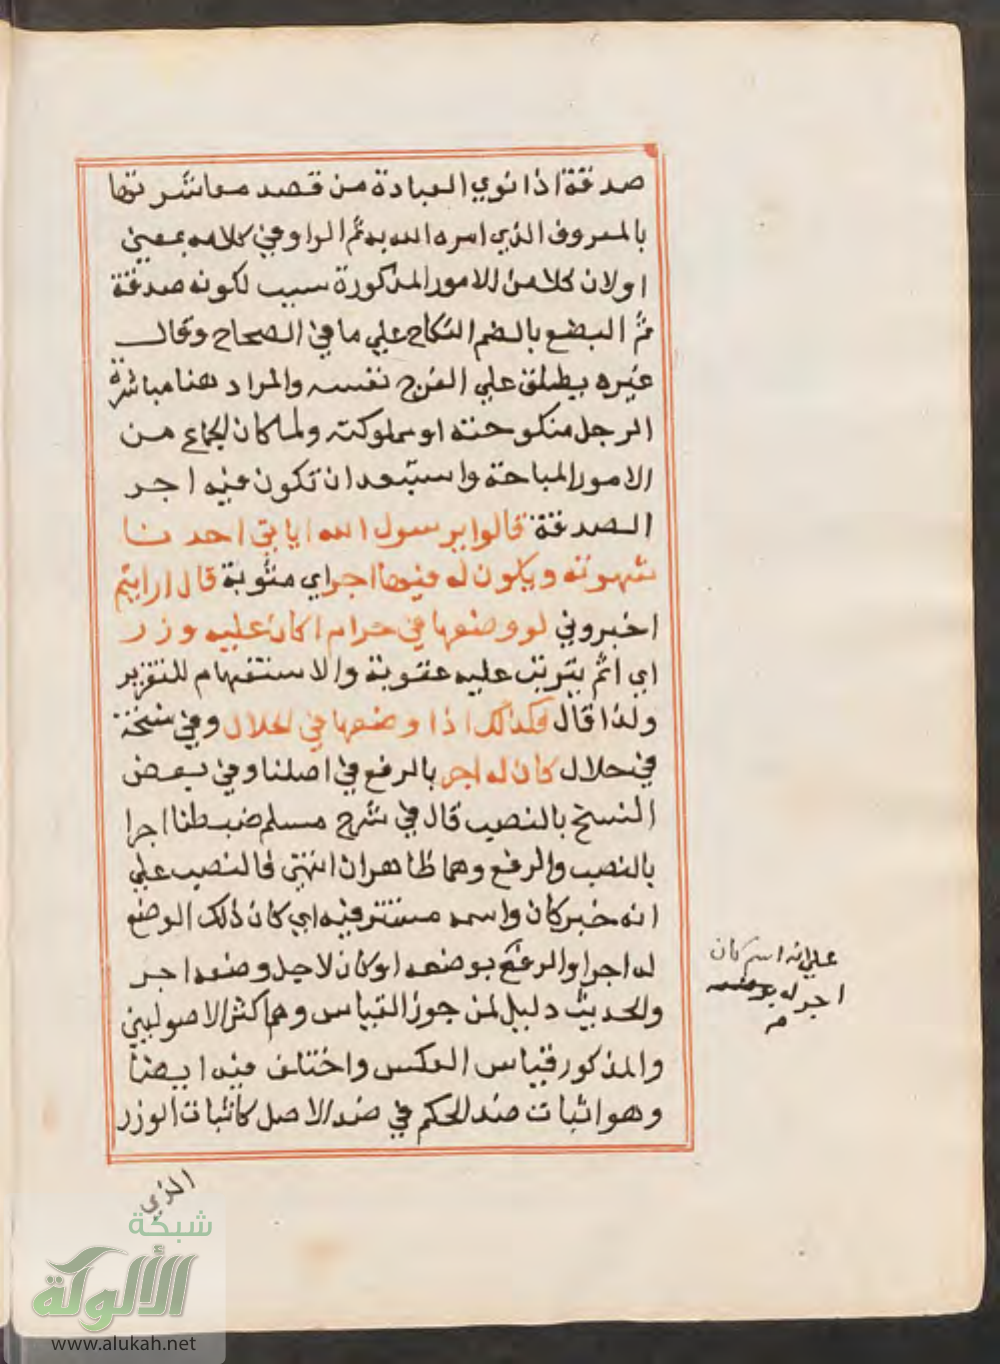 صدقة اذا نوي العبادة من قصد معاشرتها
بالمعروف الذي امره الله به ثم الواو في كلامه بمعني
او لان كلا من الامور المذكورة سبب لكونه صدقة
ثم البضع بالضم النكاح علي ما في الصحاح وقال
غيره يطلق علي الفرج نفسه والمراد هنا مباشرة
الرجل منكوحته او مملوكته ولما كان الجماع من
الامور المباحة واستبعد ان تكون فيه اجر
الصدقة قالوا يرسول الله ايا تي احدنا
شهوته ويكون له فيها اجر اي مثوبة قال ارايتم
اخبروني لو وضعها في حرام اكان عليه وزر
اي اثم يترتب عليه عقوبة والاستفهام للتقرير
ولذا قال فكذلك اذا وضعها في الحلال وفي نسخة
في حلال كان له اجر بالرفع في اصلنا وفي بعض
النسخ بالنصب قال في شرح مسلم ضبطنا اجرا
بالنصب والرفع وهما ظاهران انتهي فالنصب علي
انه خبر كان واسمه مستتر فيه اي كان ذلك الوضع
له اجرا والرفع بوضعه او كان لاجل وضعه اجر
والحديث دليل لمن جوز القياس وهم اكثر الاصوليين
والمذكور قياس العكس واختلف فيه ايضا
وهو اثبات ضد الحكم في ضد الاصل كاثبات الوزر
علي انه اسم كان
اجر له
الذي
شبكة
الألوكة
www.alukah.net